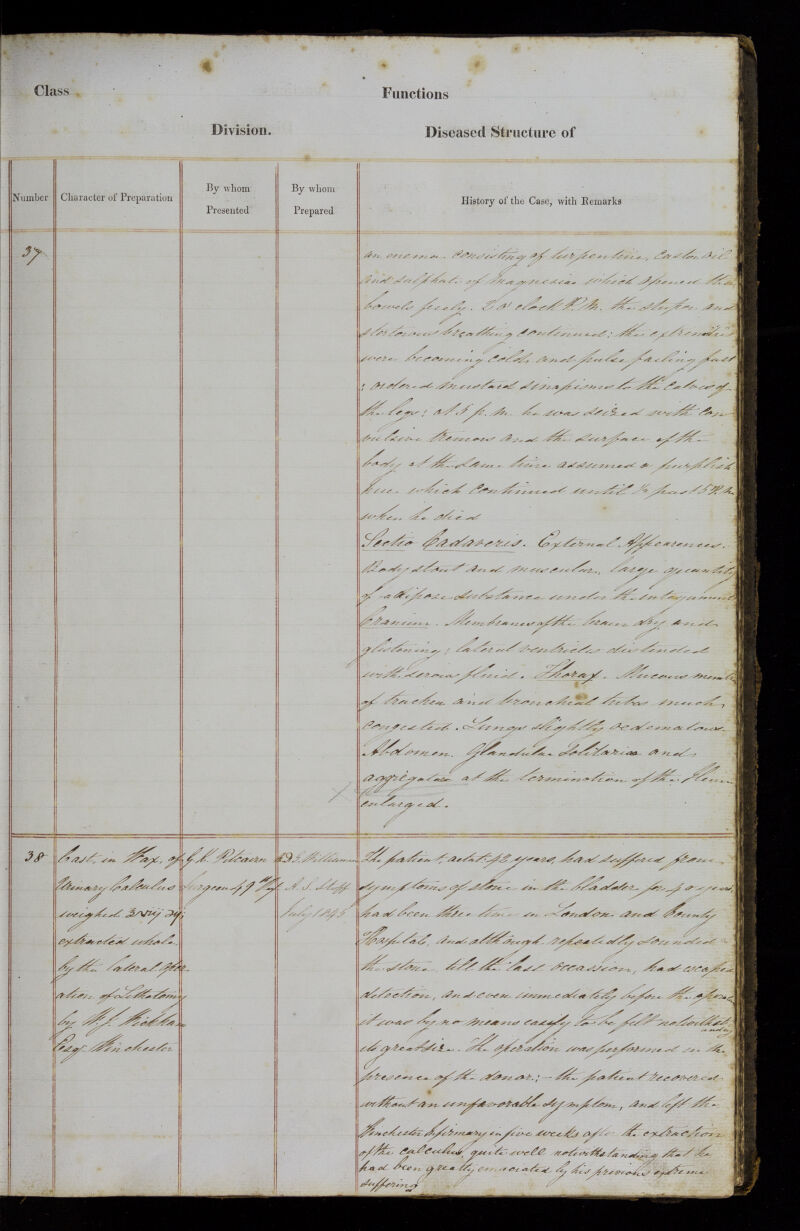 Class
Functions
Division.
Diseased Structure of
Number
Character of Preparation
By whom
Presented
By whom
Prepared
History of the Case, with Remarks
37
an enema consisting of turpentine, Castor oil
and sulphate of magnesia which opened the
bowels freely. 2 o'clock P.M. the stupor and
stertorous breathing continued; the extremities
were becoming cold, and pulse failing fast
; ordered mustard sinapisms to the calves of
the legs; at 5 p.m. he was seized with con
vulsive tremors and the surface of the
body at the same time assumed a purplish
hue which continued until ½ past 5 P.M.
when he died
Sectio Cadaveris. External Appearances.
Body stout and muscular, large quantity
of adipose substance under the integument
Cranium. Membranes of the brain dry and
glistening; lateral ventricles distended
with serous fluid. Thorax. Mucous membrane
of trachea and bronchial tubes much
congested. Lungs slightly oedematous.
Abdomen. Glandulae Solitariae and
aggregatae at the termination of the Ileum
enlarged.
38
Cast in Wax of
Urinary Calculus
weighed
extracted whole
by the lateral Oper
ation of Lithotomy
by W. J. Wickham
Esq. Winchester
G. K. Pitcairn
Surgeon 49th
Williamson
A. S. Staff
July 1845
The patient, aetat 42 years, had suffered from
symptoms of stone in the bladder for 40 years,
had been three times in London and County
Hospitals, and although repeatedly sounded
the stone till the last occassion, had escaped
detection, and even immediately before the operation
it was by no means easily to be felt notwithst
anding
its great size. The operation was performed in the
presence of the donor; – the patient recovered
without an unfavorable symptom, and left the
Winchester Infirmary in five weeks after the extraction
of the calculus, quite well notwithstanding that he
had been greatly emaciated by his previous extreme
suffering